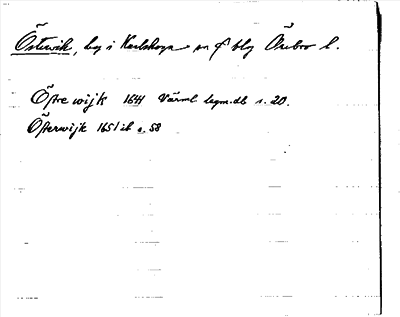 Östervik, beg i Karlskoga sn o blg Örebro l.
Östre wijk 1644 Värml. lagm.db s. 20.
Österwijk 1651 ib s. 58